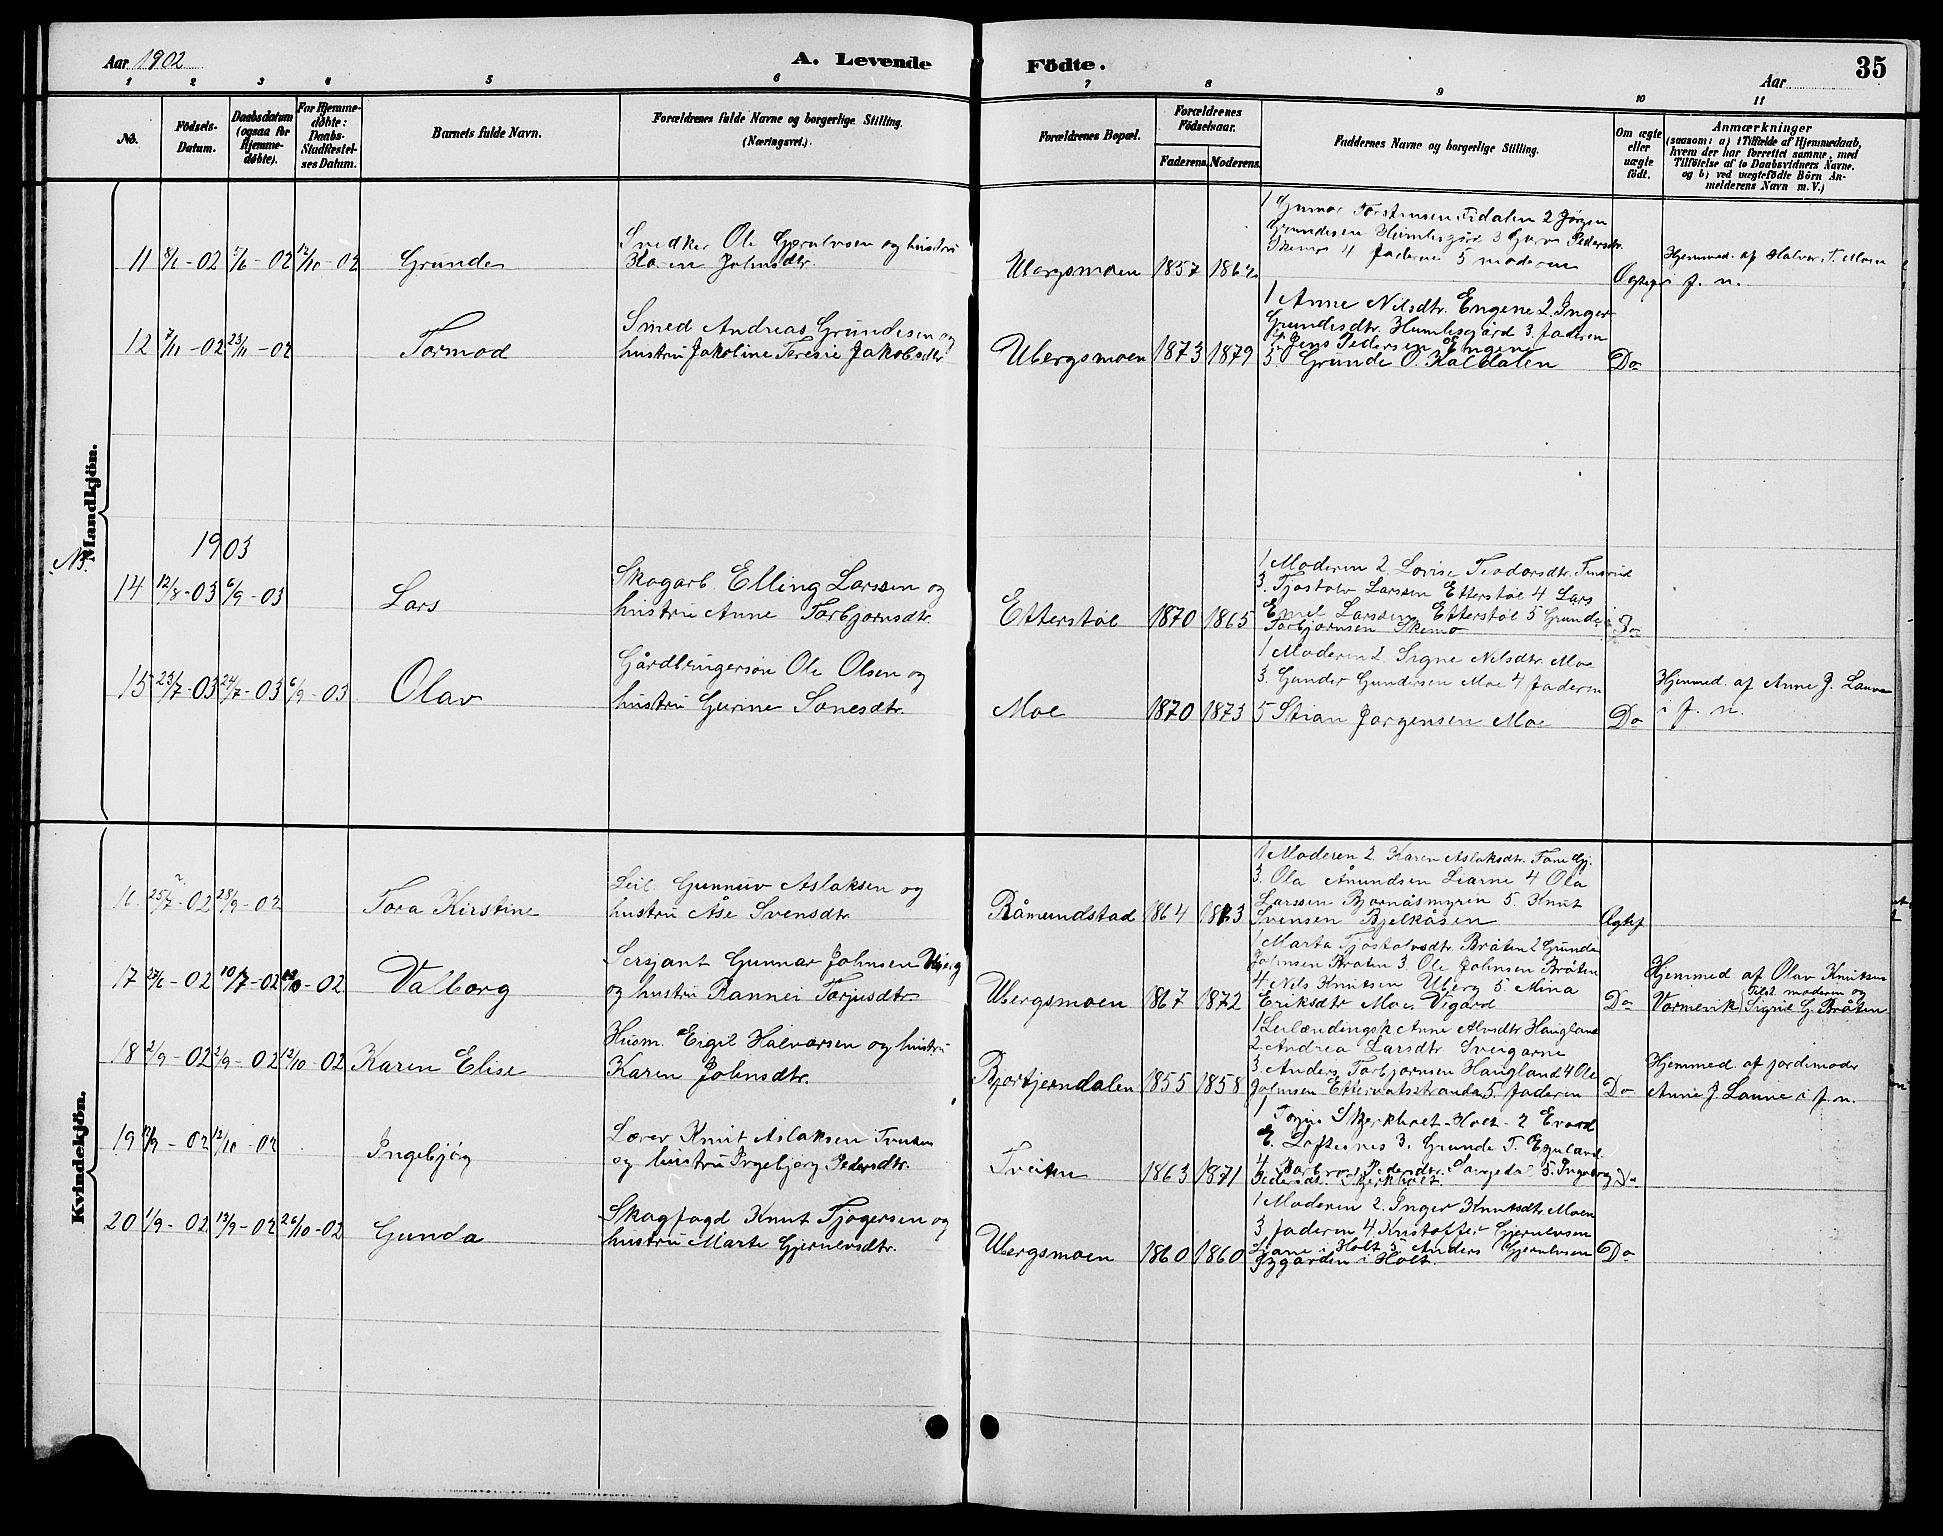 Aar 1902
A. Levende Födte.
Aar
35
1 2 3 4 5 6 7 8 9 10 11
No.
Födsels-Datum.
Daabsdatum (ogsaa for Hjemmedöbte).
For Hjemmedöbte: Daabs-Stadfæstelses Datum.
Barnets fulde Navn.
Forældrenes fulde Navne og borgerlige Stilling.
(Næringsvei.)
Forældrenes Bopæl.
Forældrenes Födselsaar.
Faderens. Moderens.
Faddernes Navne og borgerlige Stilling.
Om ægte eller uægte födt.
Anmærkninger
(saasom: a) i Tilfælde af Hjemmedaab,
hvem der har forrettet samme, med
Tilföielse af to Daabsvidners Navne.
og b) ved uægtefödte Börn An-
melderens Navn m. V.)
Mandkjön.
11 8/1-02 1/6-02 12/10-02 Grunde
Snedker Ole Gjerulvsen og hustru
Karen Johnsdtr.
Ubergsmoen 1857
1 Gunnar Torstensen 2 Jörgen
Grundesen Humlesgård 3
Skemo 4 Faderen 5 moderen
Hjemmed. af Halvor T. Moen
i f. n.
12 7/11-02 23/11-02 Tormod
Smed Andreas Grundesen og
hustru Jakoline Teresie Jakobsdtr
Ubergsmoen 1873 1879
1 Anne Nilsdtr. Engene 2. Inger
Grundesdtr. Humlesgård 3. Faderen
4 Jens Pedersen Engene
5. Grunde O. Kaldalen
Do
NB.
1903
14 12/8-03 6/9-03 Lars
Skogarb. Elling Larssen og
hustru Anne Torbjørnsdtr.
Etterstøl 1870 1865
1 Moderen 2. Lovise Teodorsdtr.
3. Tjostolv Larssen Etterstøl 4 Lars
Emil Larssen Etterstøl 5 Grunde
Torbjørnsen Skemo
Do
15 23/7-03 24/7-03 6/9-03 Olav
Gårdbrugersøn Ole Olsen og
hustru Gurine Sonesdtr.
Moe 1870 1873
1 Moderen 2. Signe Nelsdtr. Moe
3. Gunder Gundersen Moe 4 Faderen
5 Stian Jørgensen Moe
Do
Hjemmed. af Anne J. Lauve
i f. n.
Kvindekjön.
16 25/7-02 28/9-02 Tora Kirstine
Leil. Gunnuv Aslaksen og
hustru Åse Svensdtr.
Råmundstad 1864 1873
1 Moderen 2 Karen Aslaksdtr.
3. Ola Ånundsen Liarne 4 Ola
Larssen Bjørnåsmyren 5. Knut
Svensen Bjelkåsen
Ægtef
17 27/6-02 10/7-02 12/10-02 Valborg
Sersjant Gunnar Johnsen Uberg
og hustru Rannei Torjusdtr
Ubergsmoen 1867 1872
1 Marta Tjostolvsdtr. Bråten 2 Grunde
Johnsen Bråten 3. Ole Johnsen Bråten
4 Nils Knutsen Uberg 5 Mina
Eriksdtr Moe Vegård
Do
Hjemmed af Olav Knutsen
Tilst. moderen og
Vormevik Sigrid G. Bråten
18 2/9-02 2/9-02 12/10-02 Karen Elise
Husm. Eigil Halvorsen og hustru
Karen Johnsdtr.
Bjortjerndalen 1855 1858
1 Anne Alvsdtr Haugland
2. Andrea Larsdtr. Sveigarne
3. Anders Torbjørnsen Haugland 4 Ole
Johnsen 5 Faderen
Do
Hjemmed. af jordmoder
Anne J. Lauve i f. n.
19 12/10-02 Ingebjøg
Lærer Knut Aslaksen Tveiten
og hustru Ingebjørg Pedersdtr.
Tveiten 1863 1871
1 Torjus Skjerkholt-Holt-2 Evard
E. Loftesnes 3. Grunde T. Egeland
4 Pedersdtr. Songedal 5. Ingeborg
Pedersdtr. Skjerkholt.
Do
20 1/9-02 13/9-02 26/10-02 Gunda
Skogfogd Knut Tjøgersen og
hustru Marte Gjerulvsdtr.
Ubergsmoen 1860 1860
1 Moderen 2. Inger Knutsdtr. Moen
3 Faderen 4 Kristoffer Gjerulvsen
Liane i Holt 5. Anders Gjerulvsen
i Holt.
Do